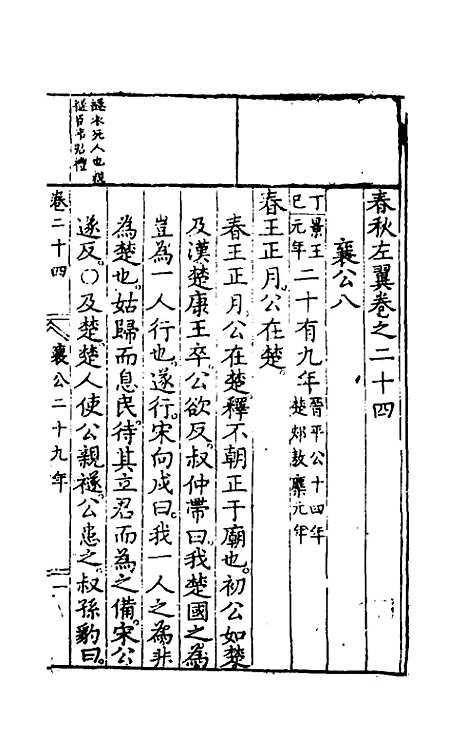 春秋左翼卷之二十四
襄公八
丁景王
巳元年
二十有九年
晉平公十四年
楚郟敖麇元年
春王正月。公在楚。
春王正月公在楚。釋不朝正于廟也。初公如楚
及漢。楚康王卒。公欲反。叔仲帶曰。我楚國之為
豈為一人行也。遂行。宋向戌曰。我一人之為非
為楚也。姑歸而息民。待其立君而為之備。宋公
遂反。〇及楚。楚人使公親襚。公患之。叔孫豹曰。
襚衣死人也
襚臣弔君禮
卷二十四
襄公二十九年
一